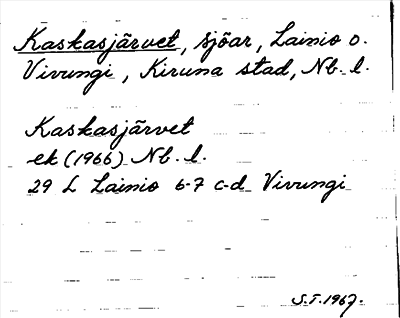 Kaskasjärvet, sjöar, Lainio o.
Vivungi, Kiruna stad, Nb. l.
Kaskasjärvet
ek (1966) Nb. l.
29 L Lainio 6-7 c-d Vivungi
S.T. 1967.